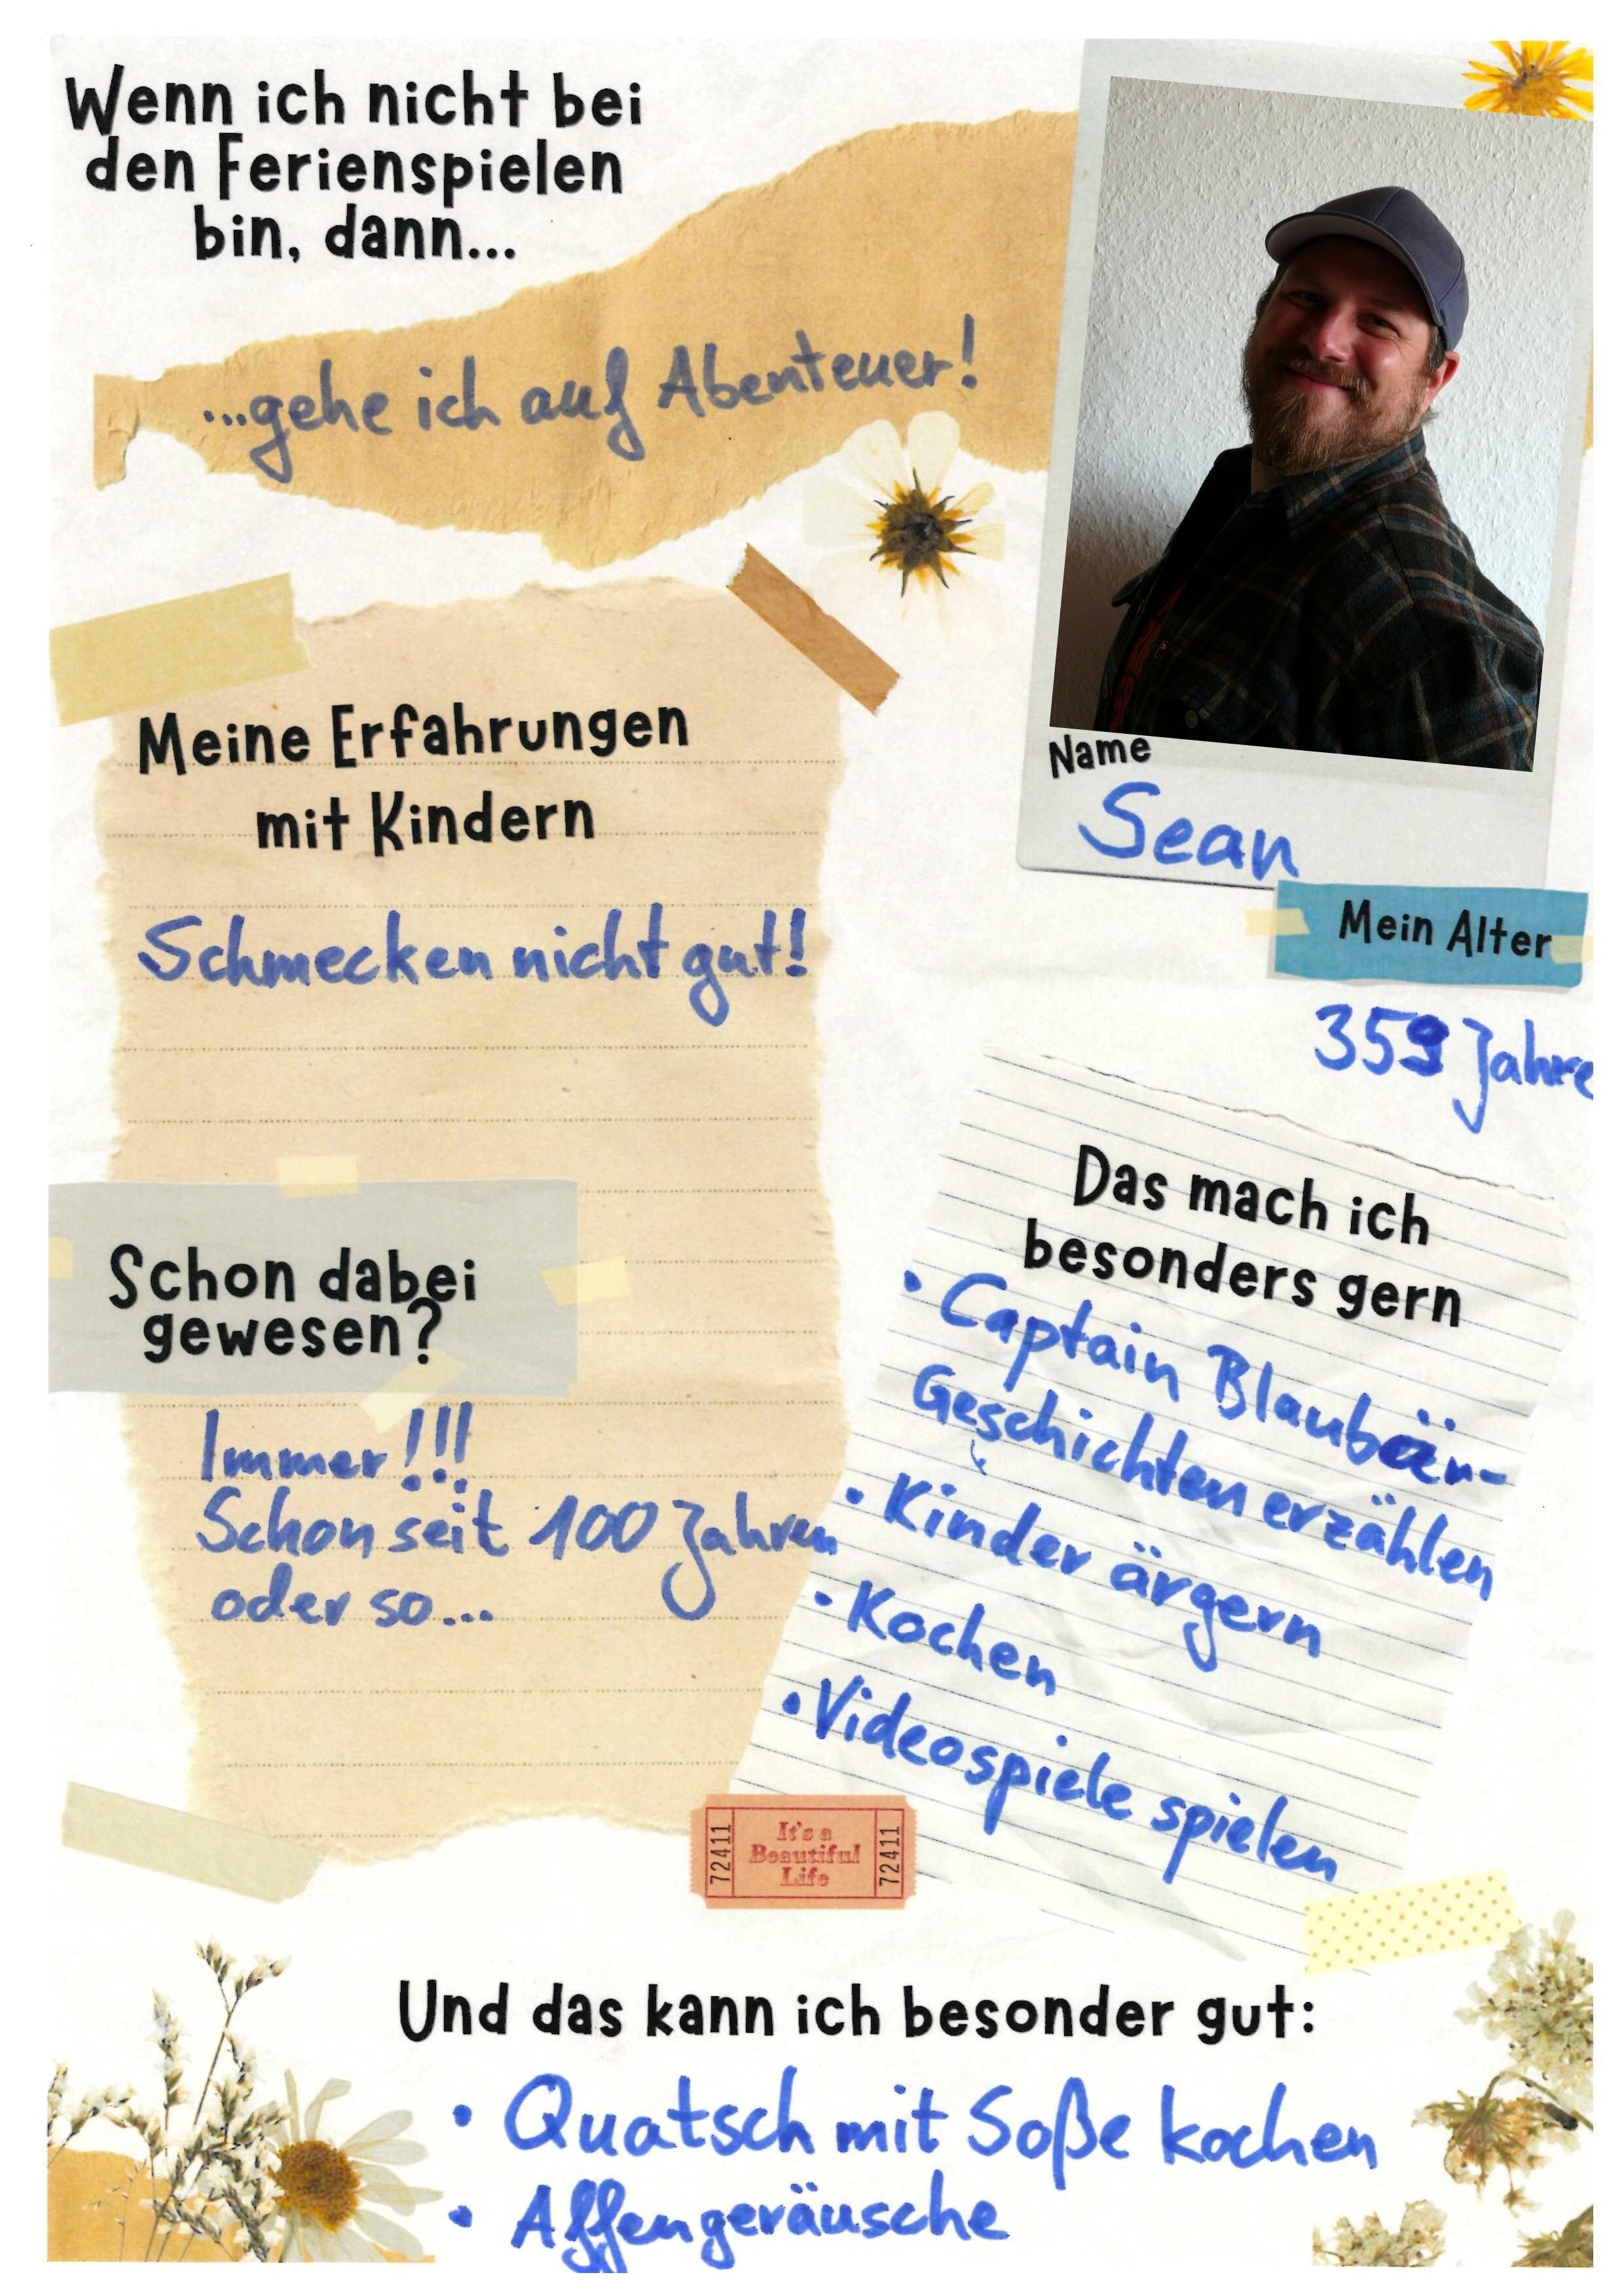 Wenn ich nicht bei
den Ferienspielen
bin, dann...
...gehe ich auf Abenteuer!
Name
Sean
Mein Alter
359 Jahre
Meine Erfahrungen
mit Kindern
Schmecken nicht gut!
Schon dabei
gewesen?
Immer!!!
Schon seit 100 Jahren
oder so...
Das mach ich
besonders gern
• Captain Blaubär-
Geschichten erzählen
• Kinder ärgern
• Kochen
• Videospiele spielen
72411
It's a
Beautiful
Life
72411
Und das kann ich besonder gut:
• Quatsch mit Soße kochen
• Affengeräusche